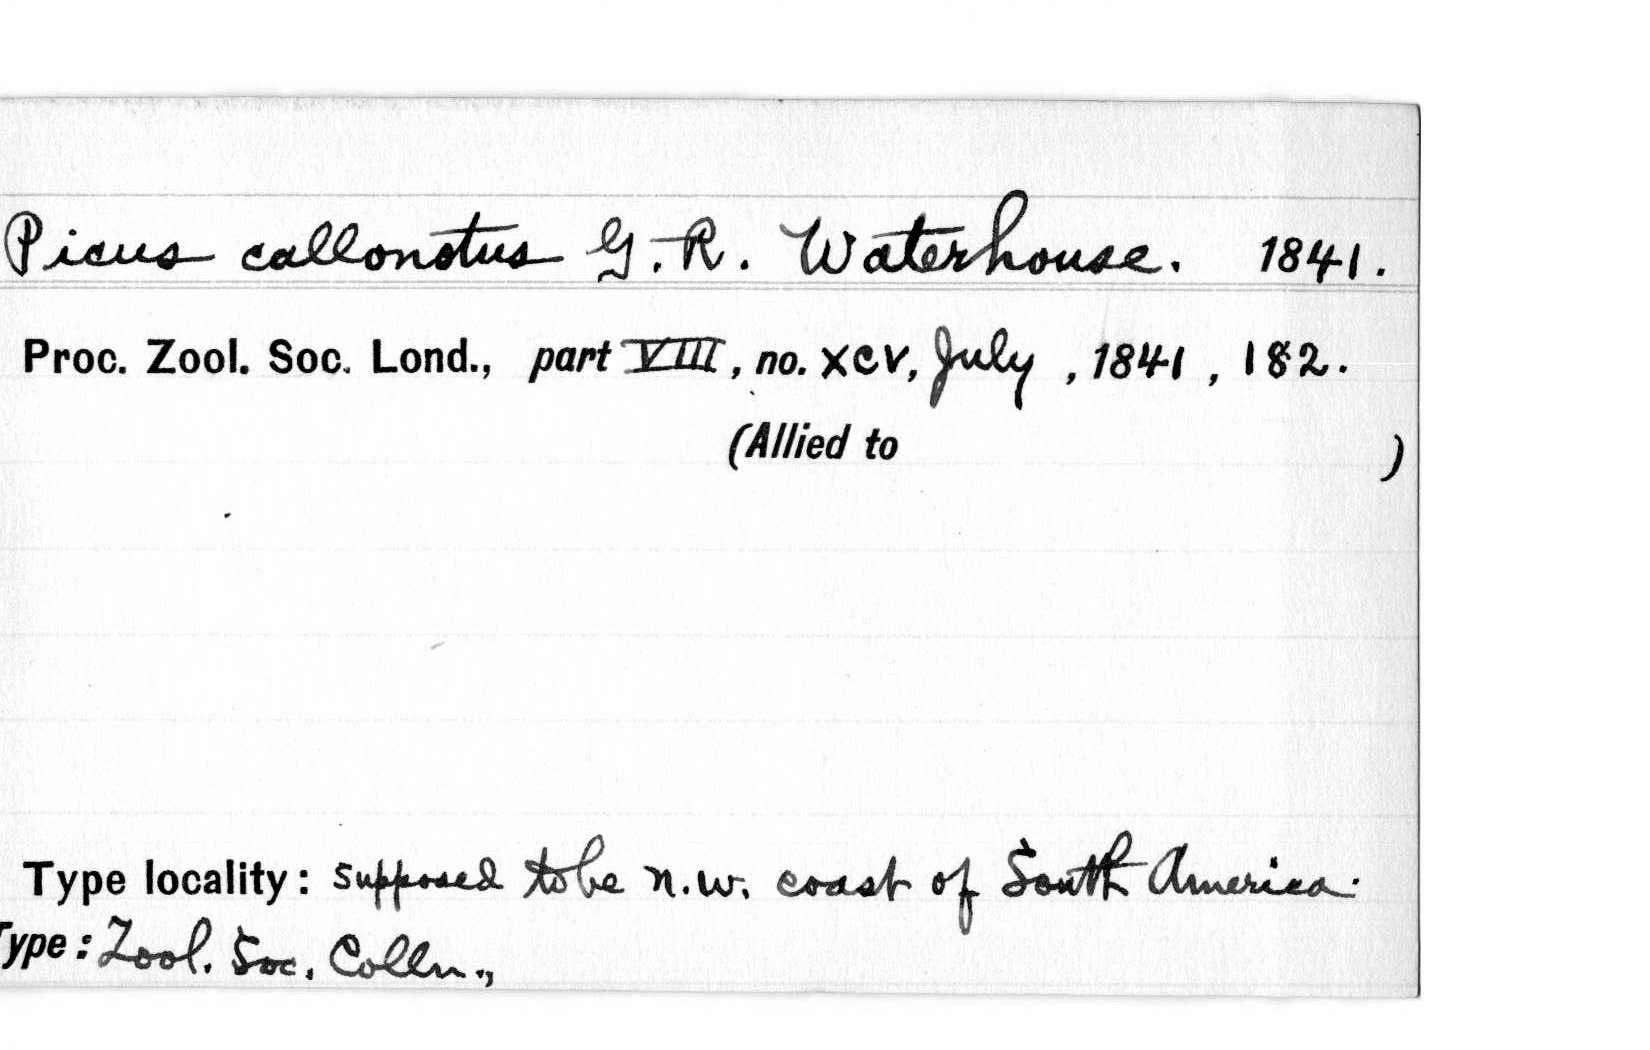 Picus callonotus G. R. Waterhouse. 1841.
Proc. Zool. Soc. Lond., part VIII, no. XCV, July, 1841, 182.
(Allied to )
Type locality: supposed to be n.w. coast of South America.
Type: Zool. Soc. Colln.,